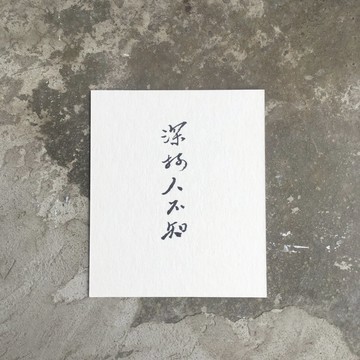 深林人不知